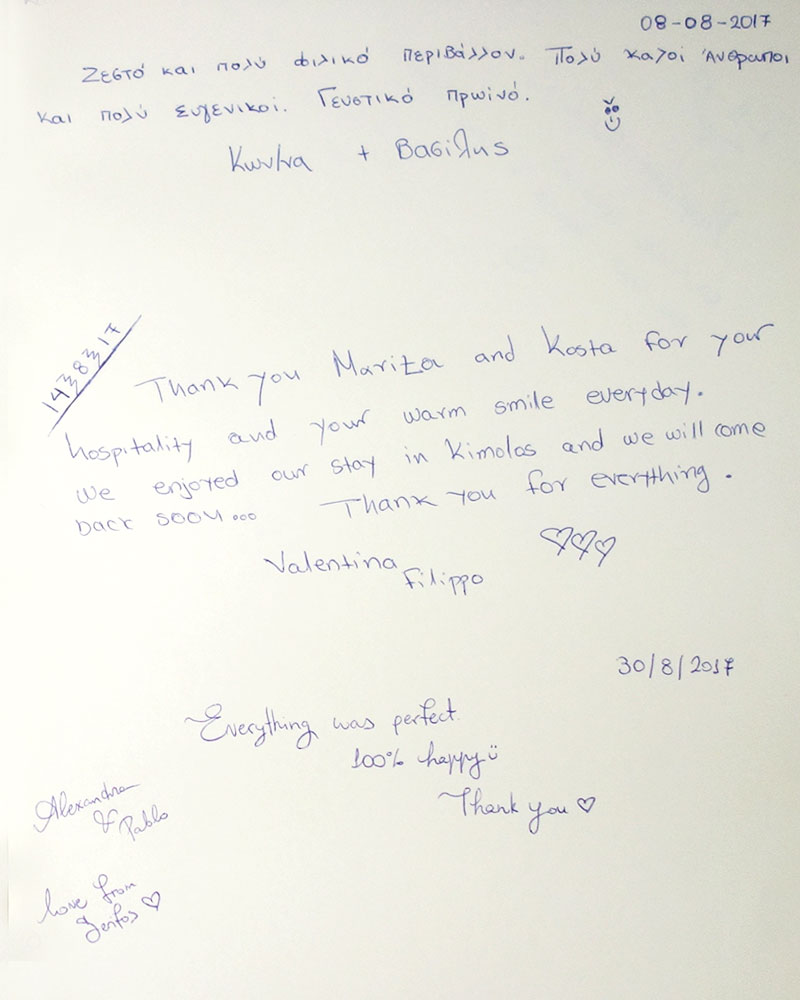 08-08-2017
Ζεστό και πολύ φιλικό περιβάλλον. Πολύ καλοί Άνθρωποι
και πολύ ευγενικοί. Γευστικό πρωινό.
Κων/να + Βασίλης
Thank you Maritza and Kosta for your
hospitality and your warm smile everyday.
We enjoyed our stay in Kimolos and we will come
back soon... Thank you for everything.
Valentina
Filippo
30/8/2017
Everything was perfect.
100% happy
Thank you
Alexandra
& Pablo
love from
Serifos